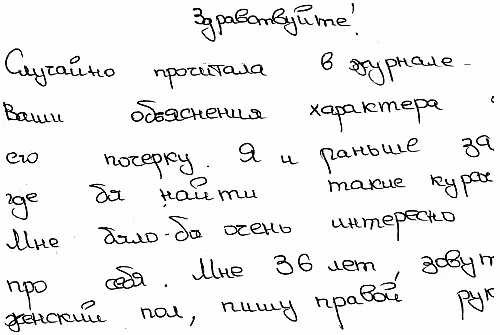 Здравствуйте!
Случайно прочитала в журнале -
Ваши объяснения характера
его почерку. Я и раньше за
где бы найти такие курс
Мне было-бы очень интересно
про себя. Мне 36 лет, зовут
женский пол, пишу правой рук